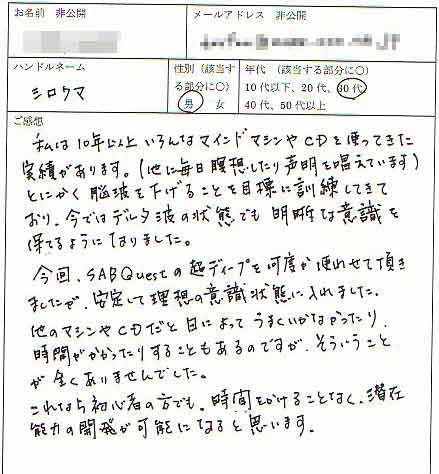 お名前 非公開
メールアドレス 非公開
ハンドルネーム
シロクマ
性別（該当する部分に○）
男 女
年代（該当する部分に○）
10代以下、20代、30代
40代、50代以上
ご感想
私は10年以上いろんなマインドマシンやCDを使ってきた
実績があります。（他に毎日瞑想したり声明を唱えています）
とにかく脳波を下げることを目標に訓練してきて
おり、今ではデルタ波の状態でも明晰な意識を
保てるようになりました。
今回、SABQuestの超ディープを何度か使わせて頂き
ましたが、安定して理想の意識状態に入れました。
他のマシンやCDだと日によってうまくいかなかったり、
時間がかかったりすることもあるのですが、そういうこと
が全くありませんでした。
これなら初心者の方でも、時間をかけることなく、潜在
能力の開発が可能になると思います。